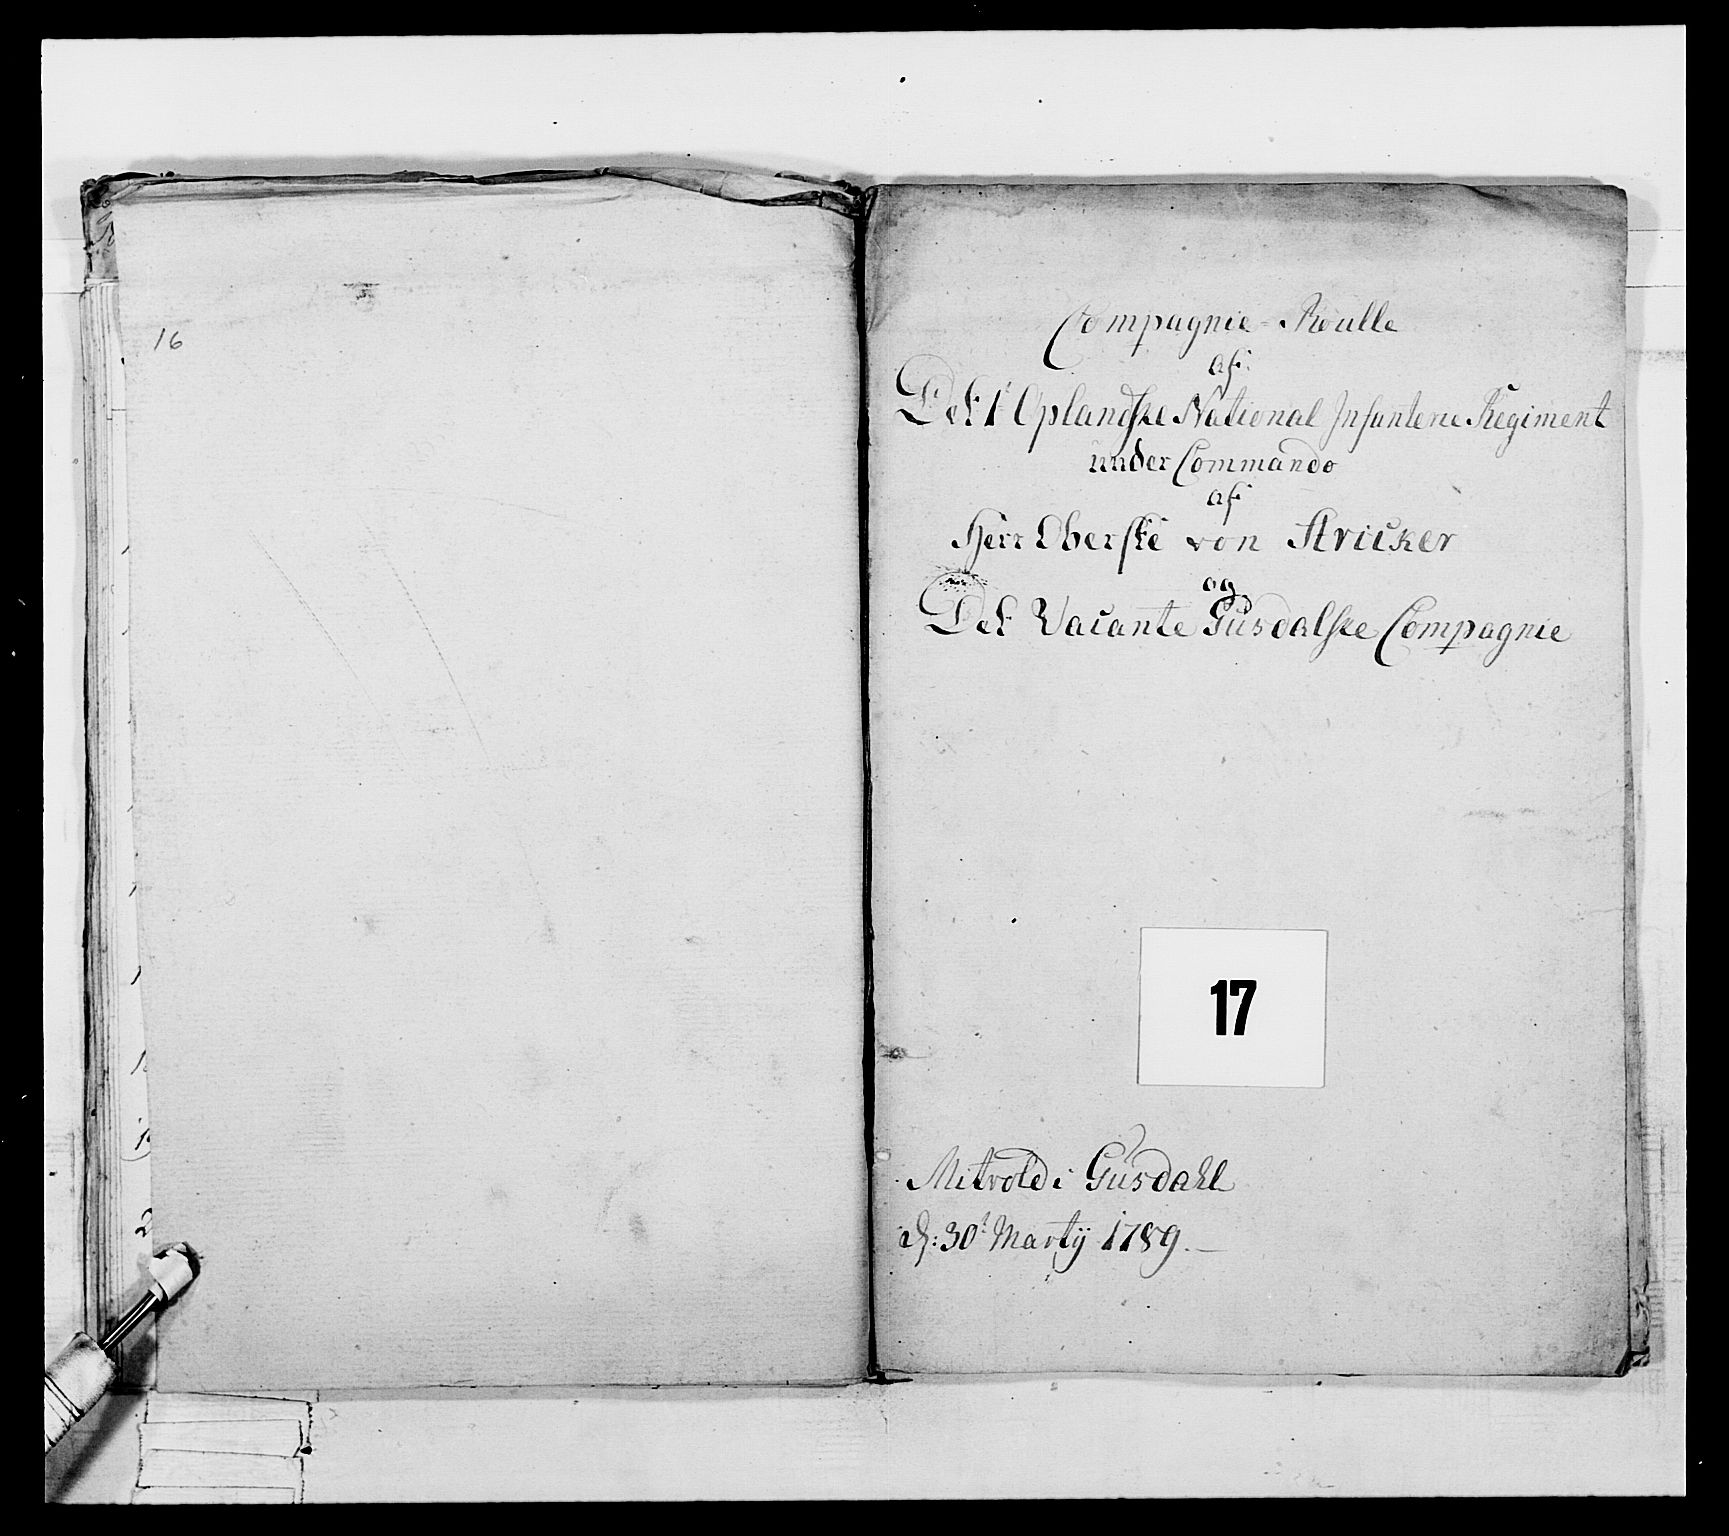 16
Compagnie-Roulle
af
Det 1t Oplandske National Infanterie Regiment
under Commando
af
Herr Oberste von Stricker
og
Det Vacante Gusdalske Compagnie
17
Mitvold i Gusdahl
d: 30t Martij 1789.